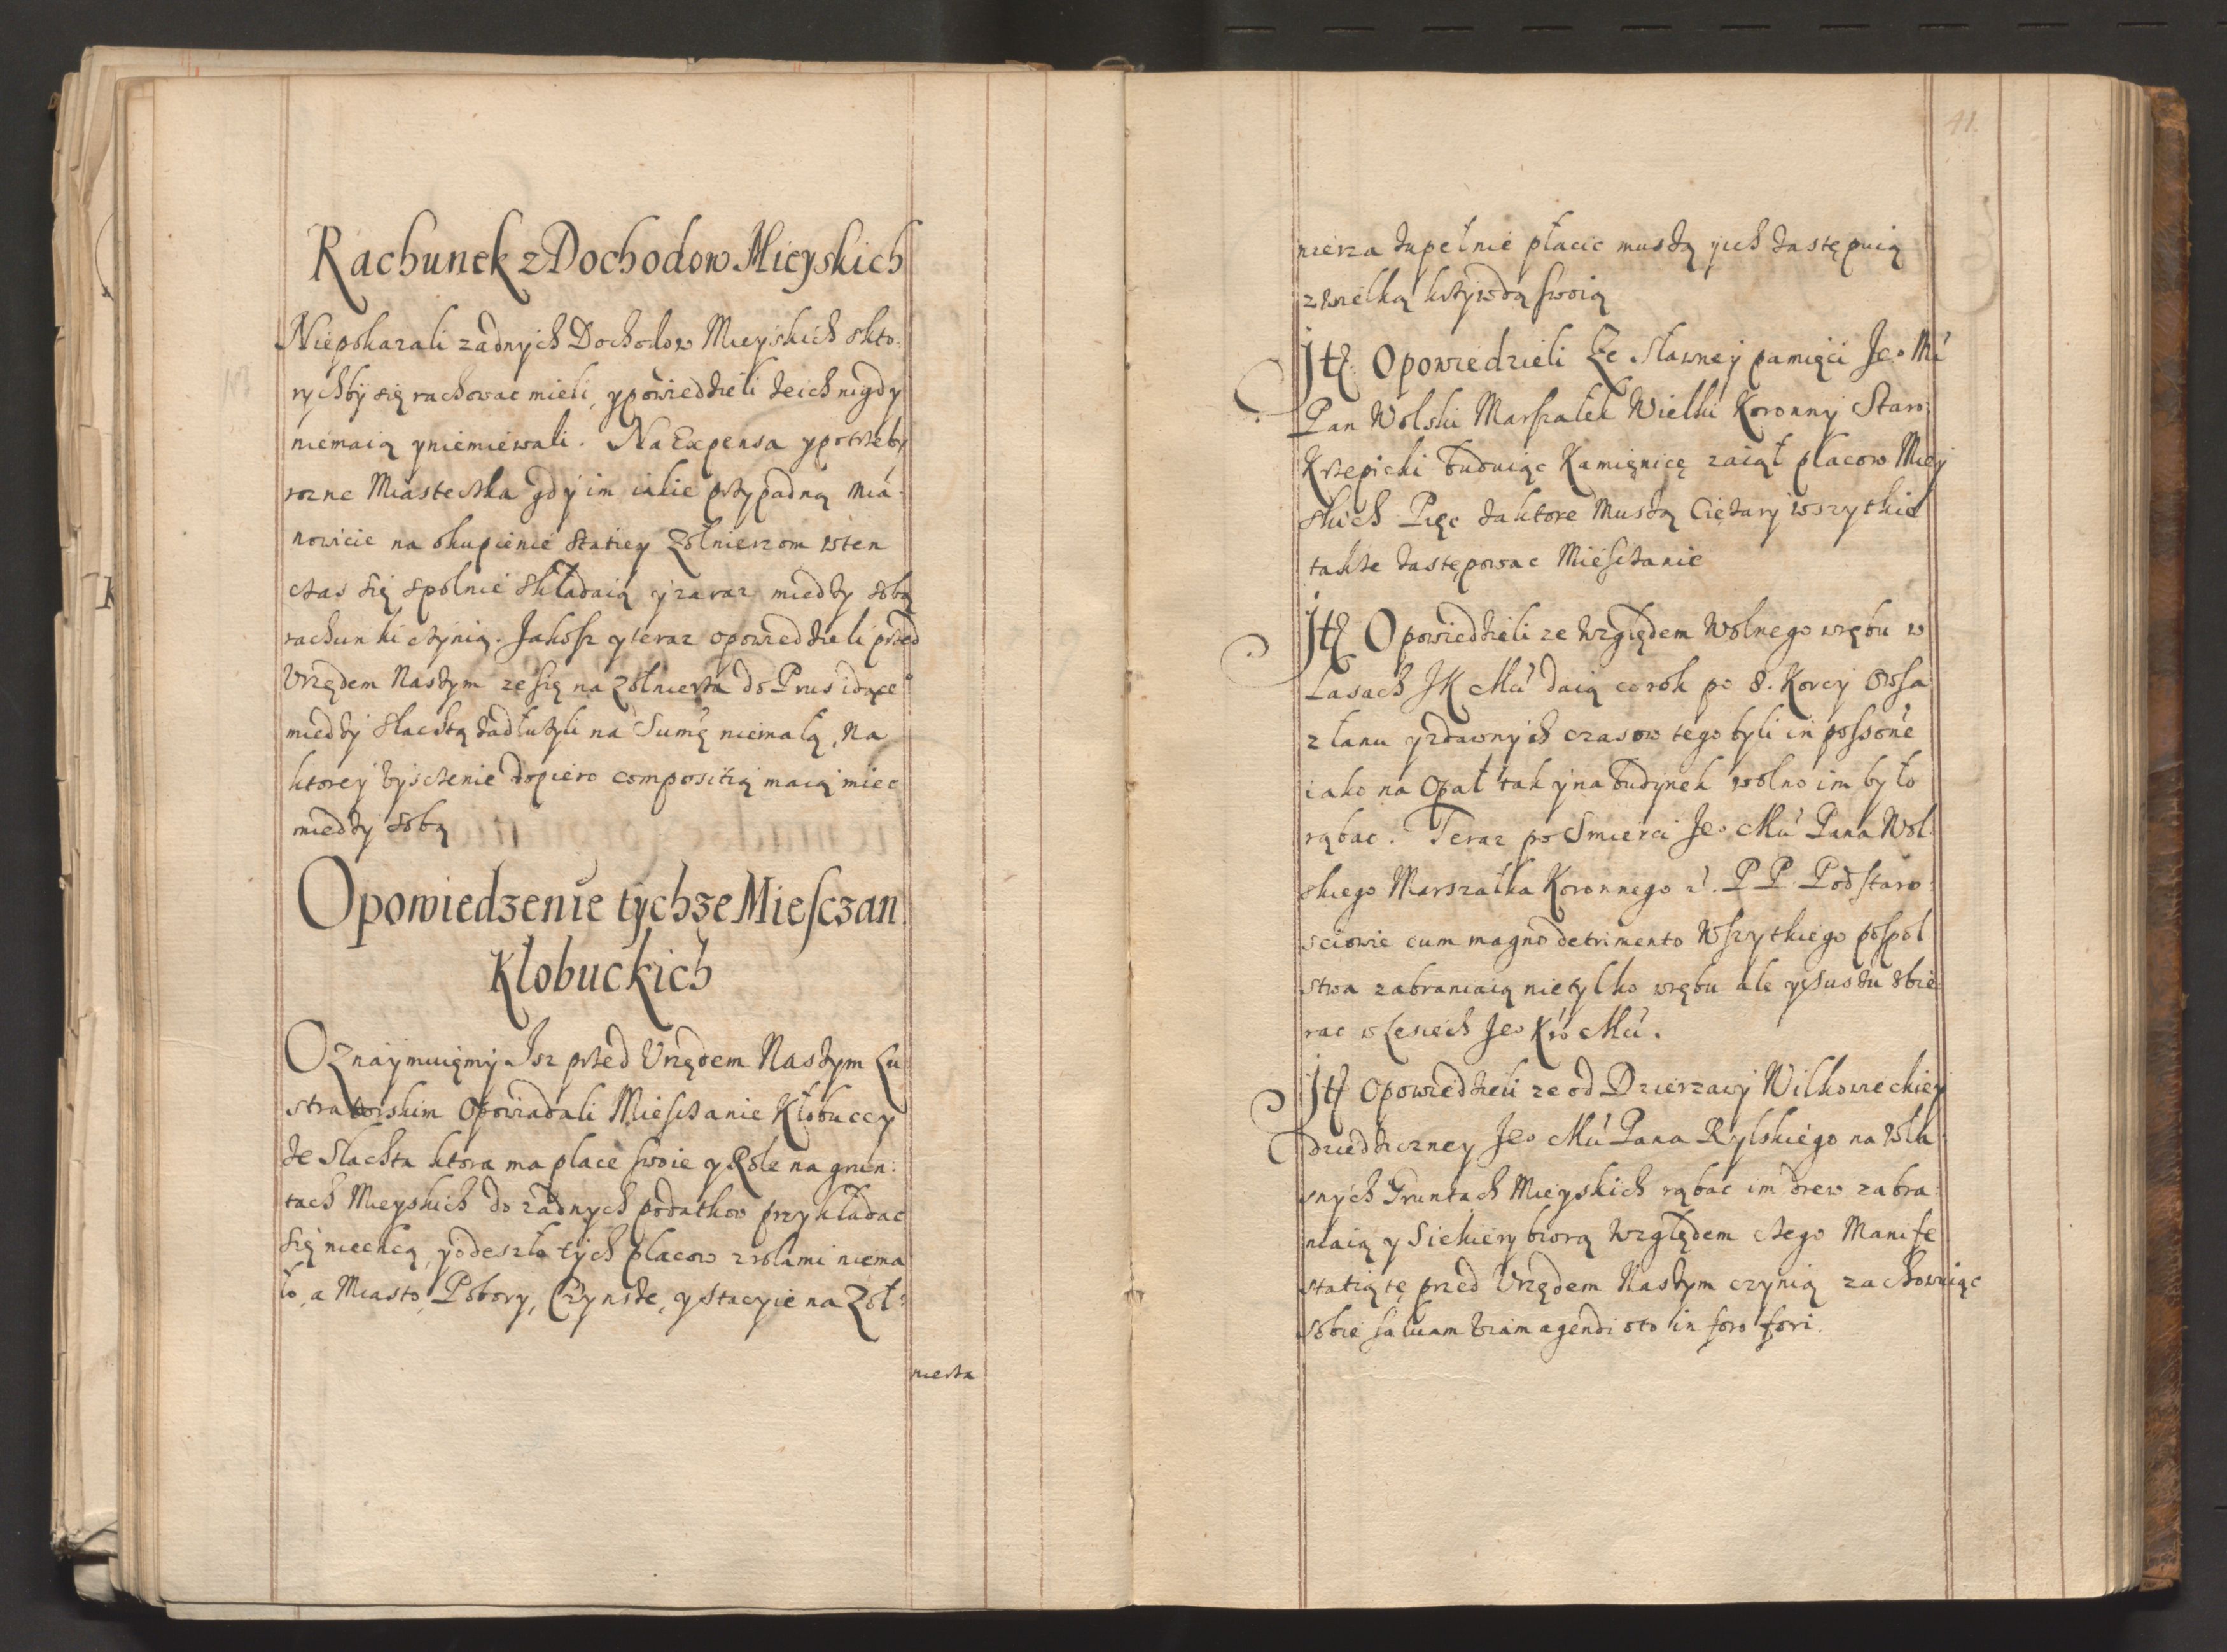 Rachunek z Dochodow Mieyskich
Niepokazali zadnych Dochodow Mieyskich skto:
rychby się rachowac mieli, ypowiedzieli zeich nigdy
niemaią yniemiewali. Na Expensa ypotrzeby
rozne Miasteczka gdy im iakie przypadną mia:
nowicie na okupienie statiey Zołnierzom wten
czas się spolnie składaią y zaraz między sobą
rachunki czynią. Jakosz yteraz opowiedzieli przed
Vrzędem Naszym ze się na zołnierza do Prus idące
między slachtą zadłuzyli na Sumę niemałą, Na
ktorey vysczenie dopiero compositią maią miec
między sobą
Opowiedzenie tychze Miesczan
Kłobuckich
Oznaymuięmy Isz przed Vrzędem Naszym Lu
stratorskim Opowiadali Miesczanie Kłobuccy
ze Slachta ktora ma place swoie y Role na grun:
tach Mieyskich do zadnych podatkow przykładac
się niechcą, yodeszło tych placow z rolami niema
ło, a Miasto, Pobory, Czynsze, y stacyie na Zoł:
nierza
41.
nierza zupełnie płacic muszą yich zastępuią
z wielką krzywdą swoią
Jtȩ Opowiedzieli Ze sławney pamięci Jeo Mć
Pan Wolski Marszałek Wielki Koronny Staro:
Krzepicki buduiąc Kamięnicę zaiął placow Miey
skich Pięc zaktore Muszą Cięzary wszytkie
takze zastępowac Miesczanie
Jtȩ Opowiedzieli ze względem Wolnego wrębu w
Lasach JK Mci daią co rok po 8. Korcy Owsa
z łanu yzdawnych czasow tego byli in possone
iako na Opał tak y na budynek wolno im było
rąbac. Teraz po Smierci Jeo Mci Pana Wol:
skiego Marszałka Koronnego P P. Podstaro:
sciowie cum magno detrimento Wszytkiego pospol
stwa zabraniaią nietylko wrębu ale ysuszu zbie
rac w Lesiech Jeo Kró Mci.
Jtȩ Opowiedzieli ze od Dzierzawy Wilkowieckiey
dziedziczney Jeo Mci Pana Rylskiego na wła
snych Gruntach Mieyskich rąbac im drew zabra:
niaią y Siekiery biorą względem czego Manife
statią tę przed Vrzędem Naszym czynią zachowuiąc
sobie saluam viam agendi oto in foro fori.